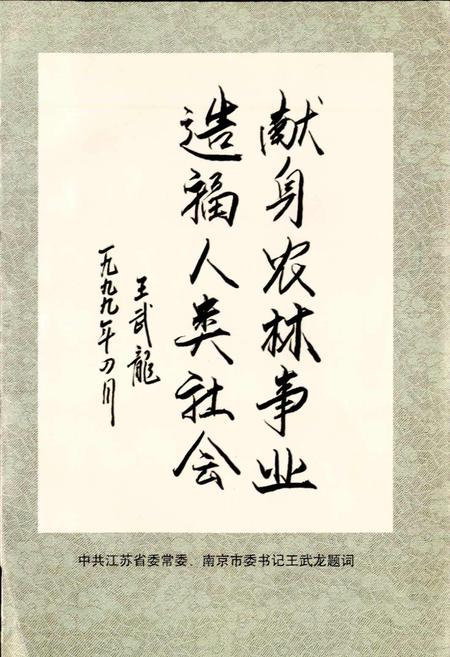 献身农林事业
造福人类社会
王武龍
一九九九年四月
中共江苏省委常委、南京市委书记王武龙题词